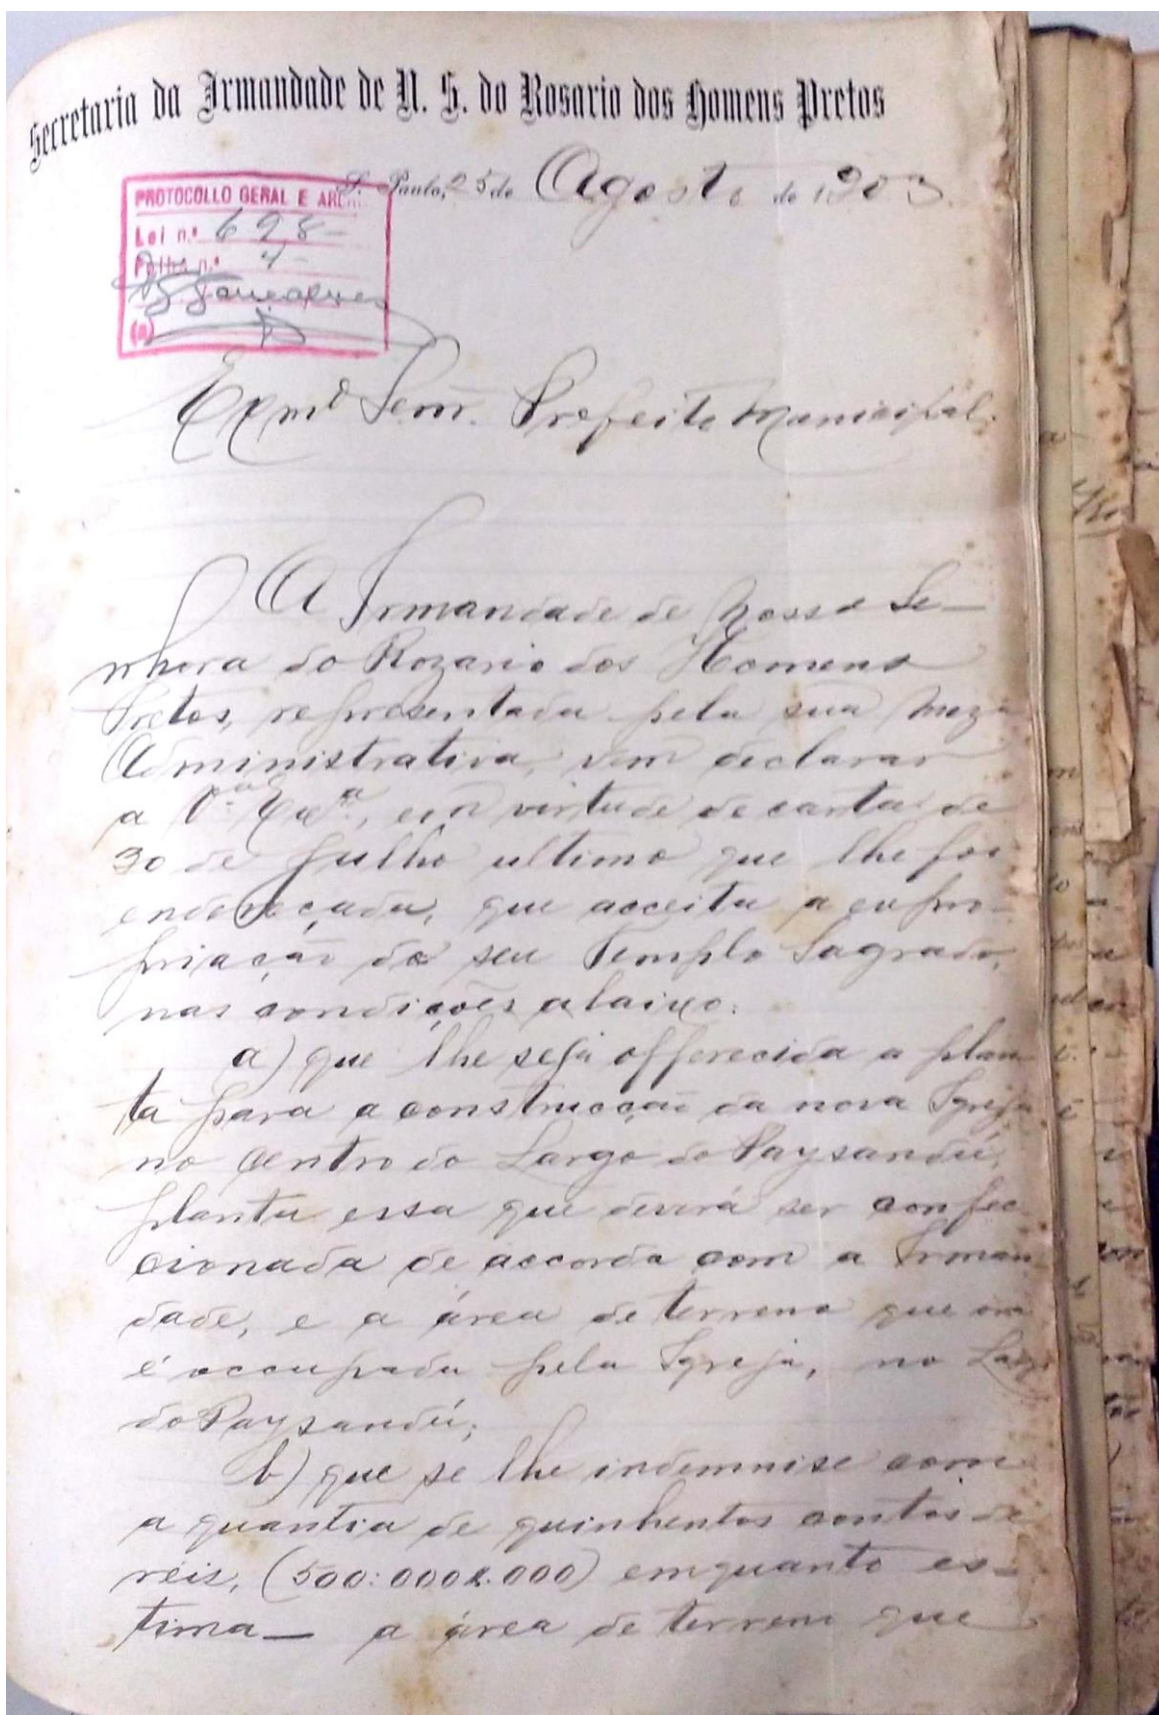 Secretaria da Irmandade de N. S. do Rosario dos Homens Pretos
S. Paulo, 25 de Agosto de 1903
PROTOCOLLO GERAL E ARC
Lei n.º 698
Folha n.º 4
(a)
Exmº Senr. Prefeito Municipal.
A Irmandade de Nossa Se-
nhora do Rozario dos Homens
Pretos, representada pela sua Meza
Administrativa, vem declarar
a V.ª Exª., em virtude de carta de
30 de Julho ultimo que lhe foi
endereçada, que acceita a expro-
priação do seu Templo Sagrado,
nas condições abaixo:
a) que lhe seja offerecida a plan
ta para a construcção da nova Igreja
no centro do Largo do Paysandú,
planta essa que deverá ser confec
cionada de accordo com a Irman
dade, e a área de terreno que ora
é occupada pela Igreja, no Largo
do Paysandú;
b) que se lhe indemnise com
a quantia de quinhentos contos de
réis, (500:000$000) em quanto es-
tima — a área de terreno que